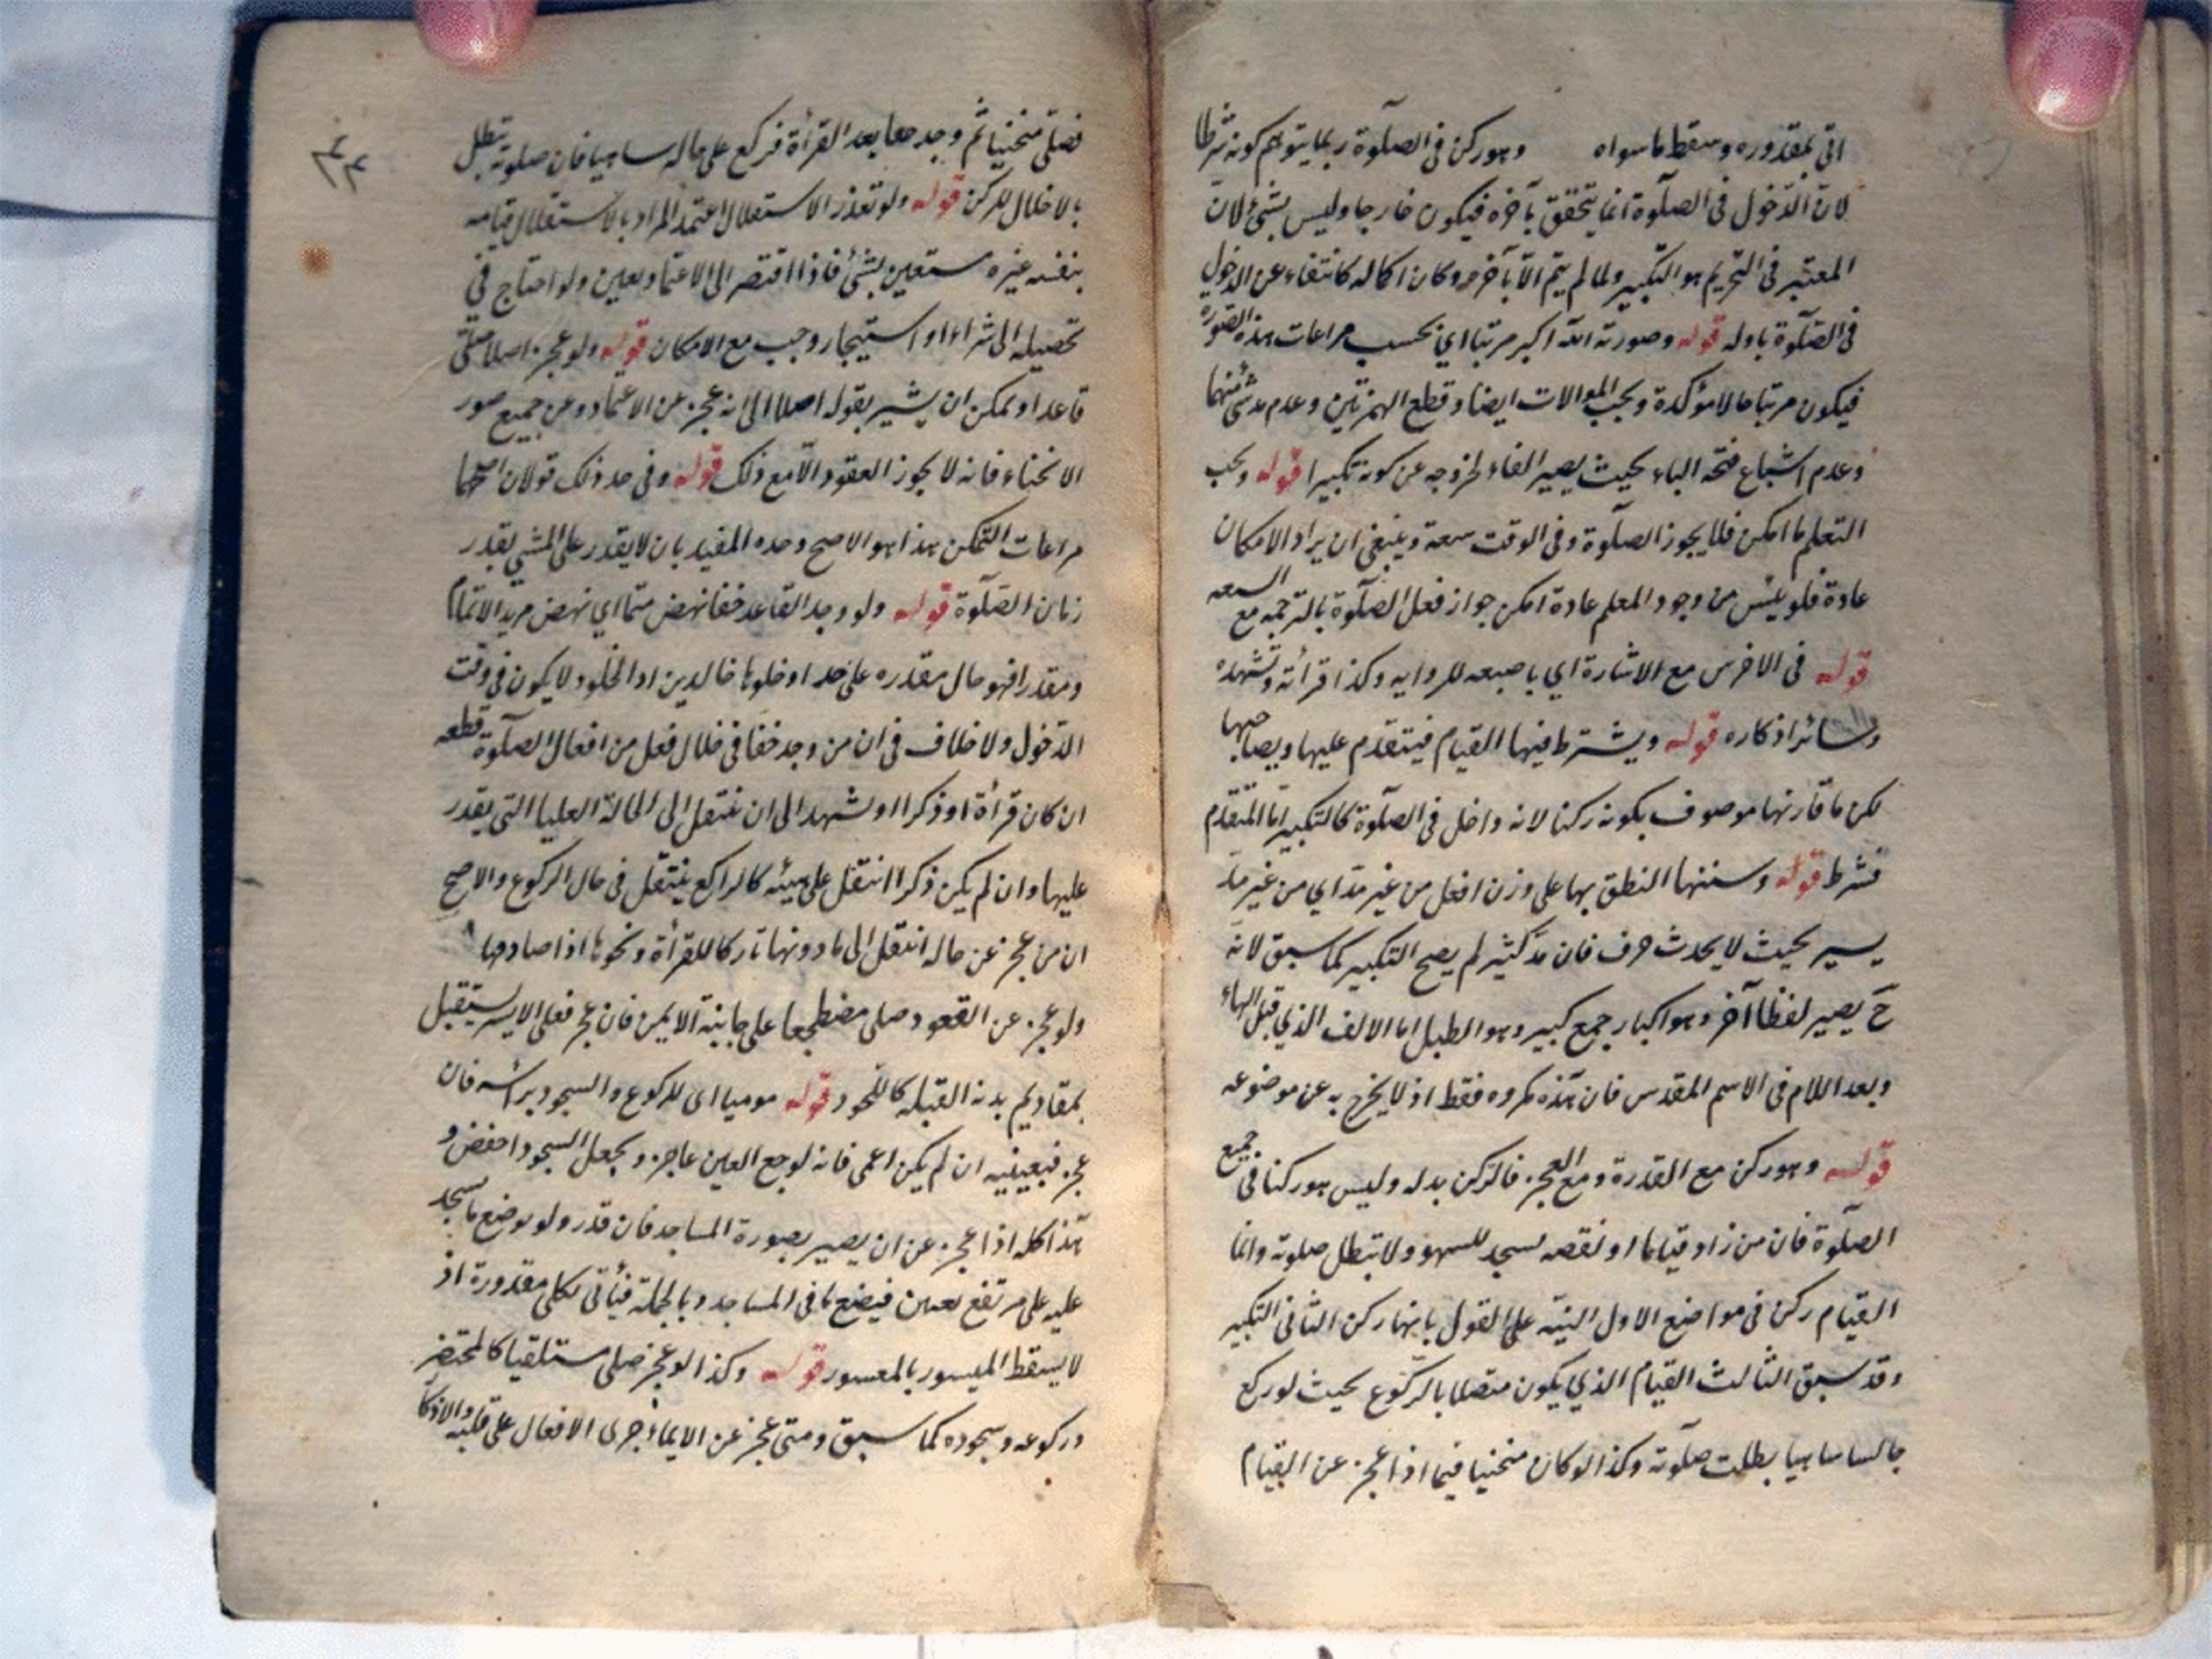 اتى بمقدوره وسقط ما سواه وهو ركن فى الصلوة ربما يتوهم كونه شرطا
لان الدخول فى الصلوة انما يتحقق بآخره فيكون خارجا وليس بشئ لان
المعتبر فى التحريم هو التكبير ولما لم يتم الا بآخره وكان اكماله كانتفاء عن الدخول
فى الصلوة باوله قوله وصورته الله اكبر مرتبا اي بحسب مراعات هذه الصورة
فيكون مرتبا حالا مؤكدة ويجب الموالات ايضا وقطع الهمزتين وعدم مد شئ منهما
وعدم اشباع فتحة الباء بحيث يصير الفاء لخروجه عن كونه تكبيرا قوله ويجب
التعلم ما امكن فلا يجوز الصلوة وفى الوقت سعة وينبغى ان يراد الامكان
عادة فلو يئس من وجود المعلم عادة امكن جواز فعل الصلوة بالترجمه مع السعه
قوله فى الاخرس مع الاشارة اي باصبعه للروايه وكذا قرائته وتشهده
وسائر اذكاره قوله ويشترط فيها القيام فيتقدم عليها ويصاحبها
لكن ما قارنها موصوف بكونه ركنا لانه داخل فى الصلوة كالتكبير اما المتقدم
فشرط قوله وسننها النطق بها على وزن افعل من غير مد اي من غير مد
يسير بحيث لا يحدث حرف فان مد كثير لم يصح التكبير كما سبق لانه
ح يصير لفظا آخر وهو اكبار جمع كبير وهو الطبل اما الالف الذي قبل الهاء
وبعد اللام فى الاسم المقدس فان مده مكروه فقط اذ لا يخرج به عن موضوعه
قوله وهو ركن مع القدرة ومع العجز فالركن بدله وليس هو ركنا فى جميع
الصلوة فان من زاد قياما او نقصه سجد للسهو ولا تبطل صلوته وانما
القيام ركن فى مواضع الاول النية على القول بانها ركن الثانى التكبير
وقد سبق الثالث القيام الذي يكون متصلا بالركوع بحيث لو ركع
جالسا ساهيا بطلت صلوته وكذا لو كان منحنيا فيما اذا عجز عن القيام
فصلى منحنيا ثم وجد خفا بعد القرأة فركع على حاله ساهيا فان صلوته تبطل
بالاخلال للركن قوله ولو تعذر الاستقلال اعتمد المراد بالاستقلال قيامه
بنفسه غيره مستعين بشئ فاذا افتقر الى الاعتماد تعين ولو احتاج في
تحصيله الى شراء او استيجار وجب مع الامكان قوله ولو عجز اصلا صلى
قاعدا ويمكن ان يشير بقوله اصلا الى انه عجز عن الاعتماد وعن جميع صور
الانحناء فانه لا يجوز القعود الا مع ذلك قوله وفى حد ذلك قولان اصحهما
مراعات التمكن هذا هو الاصح وحده المفيد بان لا يقدر على المشي بقدر
زمان الصلوة قوله ولو وجد القاعد خفا نهض متما اي نهض مريد الاتمام
ومقدرا فهو حال مقدره على حد ادخلوها خالدين اذ الخلود لا يكون في وقت
الدخول ولا خلاف فى ان من وجد خفا فى خلال فعل من افعال الصلوة قطعه
ان كان قرأة او ذكرا او تشهد الى ان ينتقل الى الحالة العليا التى يقدر
عليها وان لم يكن ذكرا انتقل على هيئه كالراكع ينتقل فى حال الركوع والاصح
ان من عجز عن حاله انتقل الى ما دونها تاركا للقرأة ونحوها اذا صادمها
ولو عجز عن القعود صلى مضطجعا على جانبه الايمن فان عجز فعلى الايسر يستقبل
بمقاديم بدنه القبله كالملحود قوله موميا اى للركوع والسجود برأسه فان
عجز فبعينيه ان لم يكن اعمى فانه لوجع العين عاجز ويجعل السجود اخفض و
هذا كله اذا عجز عن ان يصير بصورة المساجد فان قدر ولو بوضع ما يسجد
عليه على مرتفع تعين فيضع ما فى المساجد وبالجملة فيأتى بكل مقدورة اذ
لا يسقط الميسور بالمعسور قوله وكذا لو عجز صلى مستلقيا كالمحتضر
وركوعه وسجوده كما سبق ومتى عجز عن الايماء جرى الافعال على قلبه والاذكا